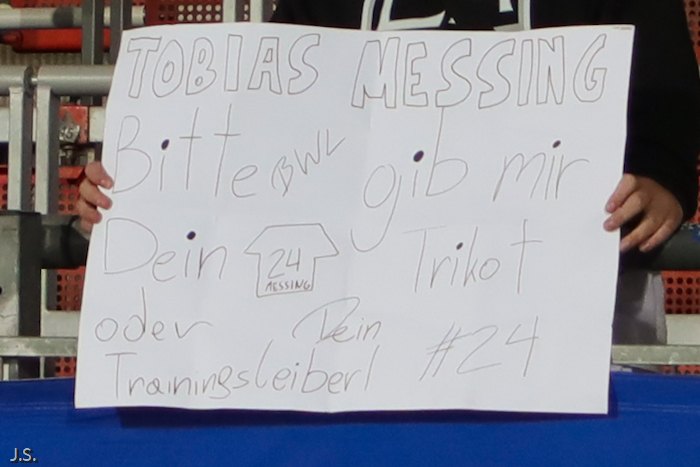 TOBIAS MESSING
Bitte BWL gib mir
Dein 24 MESSING Trikot
oder Dein #24
Trainingsleiberl
J.S.